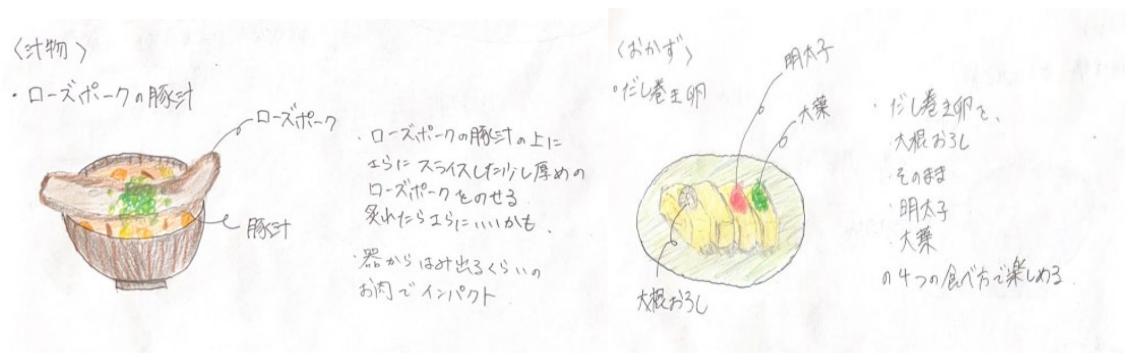 〈汁物〉
・ローズポークの豚汁
ローズポーク
豚汁
・ローズポークの豚汁の上に
さらにスライスした少し厚めの
ローズポークをのせる
炙れたらさらにいいかも、
・器からはみ出るくらいの
お肉でインパクト
〈おかず〉
・だし巻き卵
明太子
大葉
大根おろし
・だし巻き卵を、
大根おろし
・そのまま
・明太子
・大葉
の4つの食べ方で楽しめる